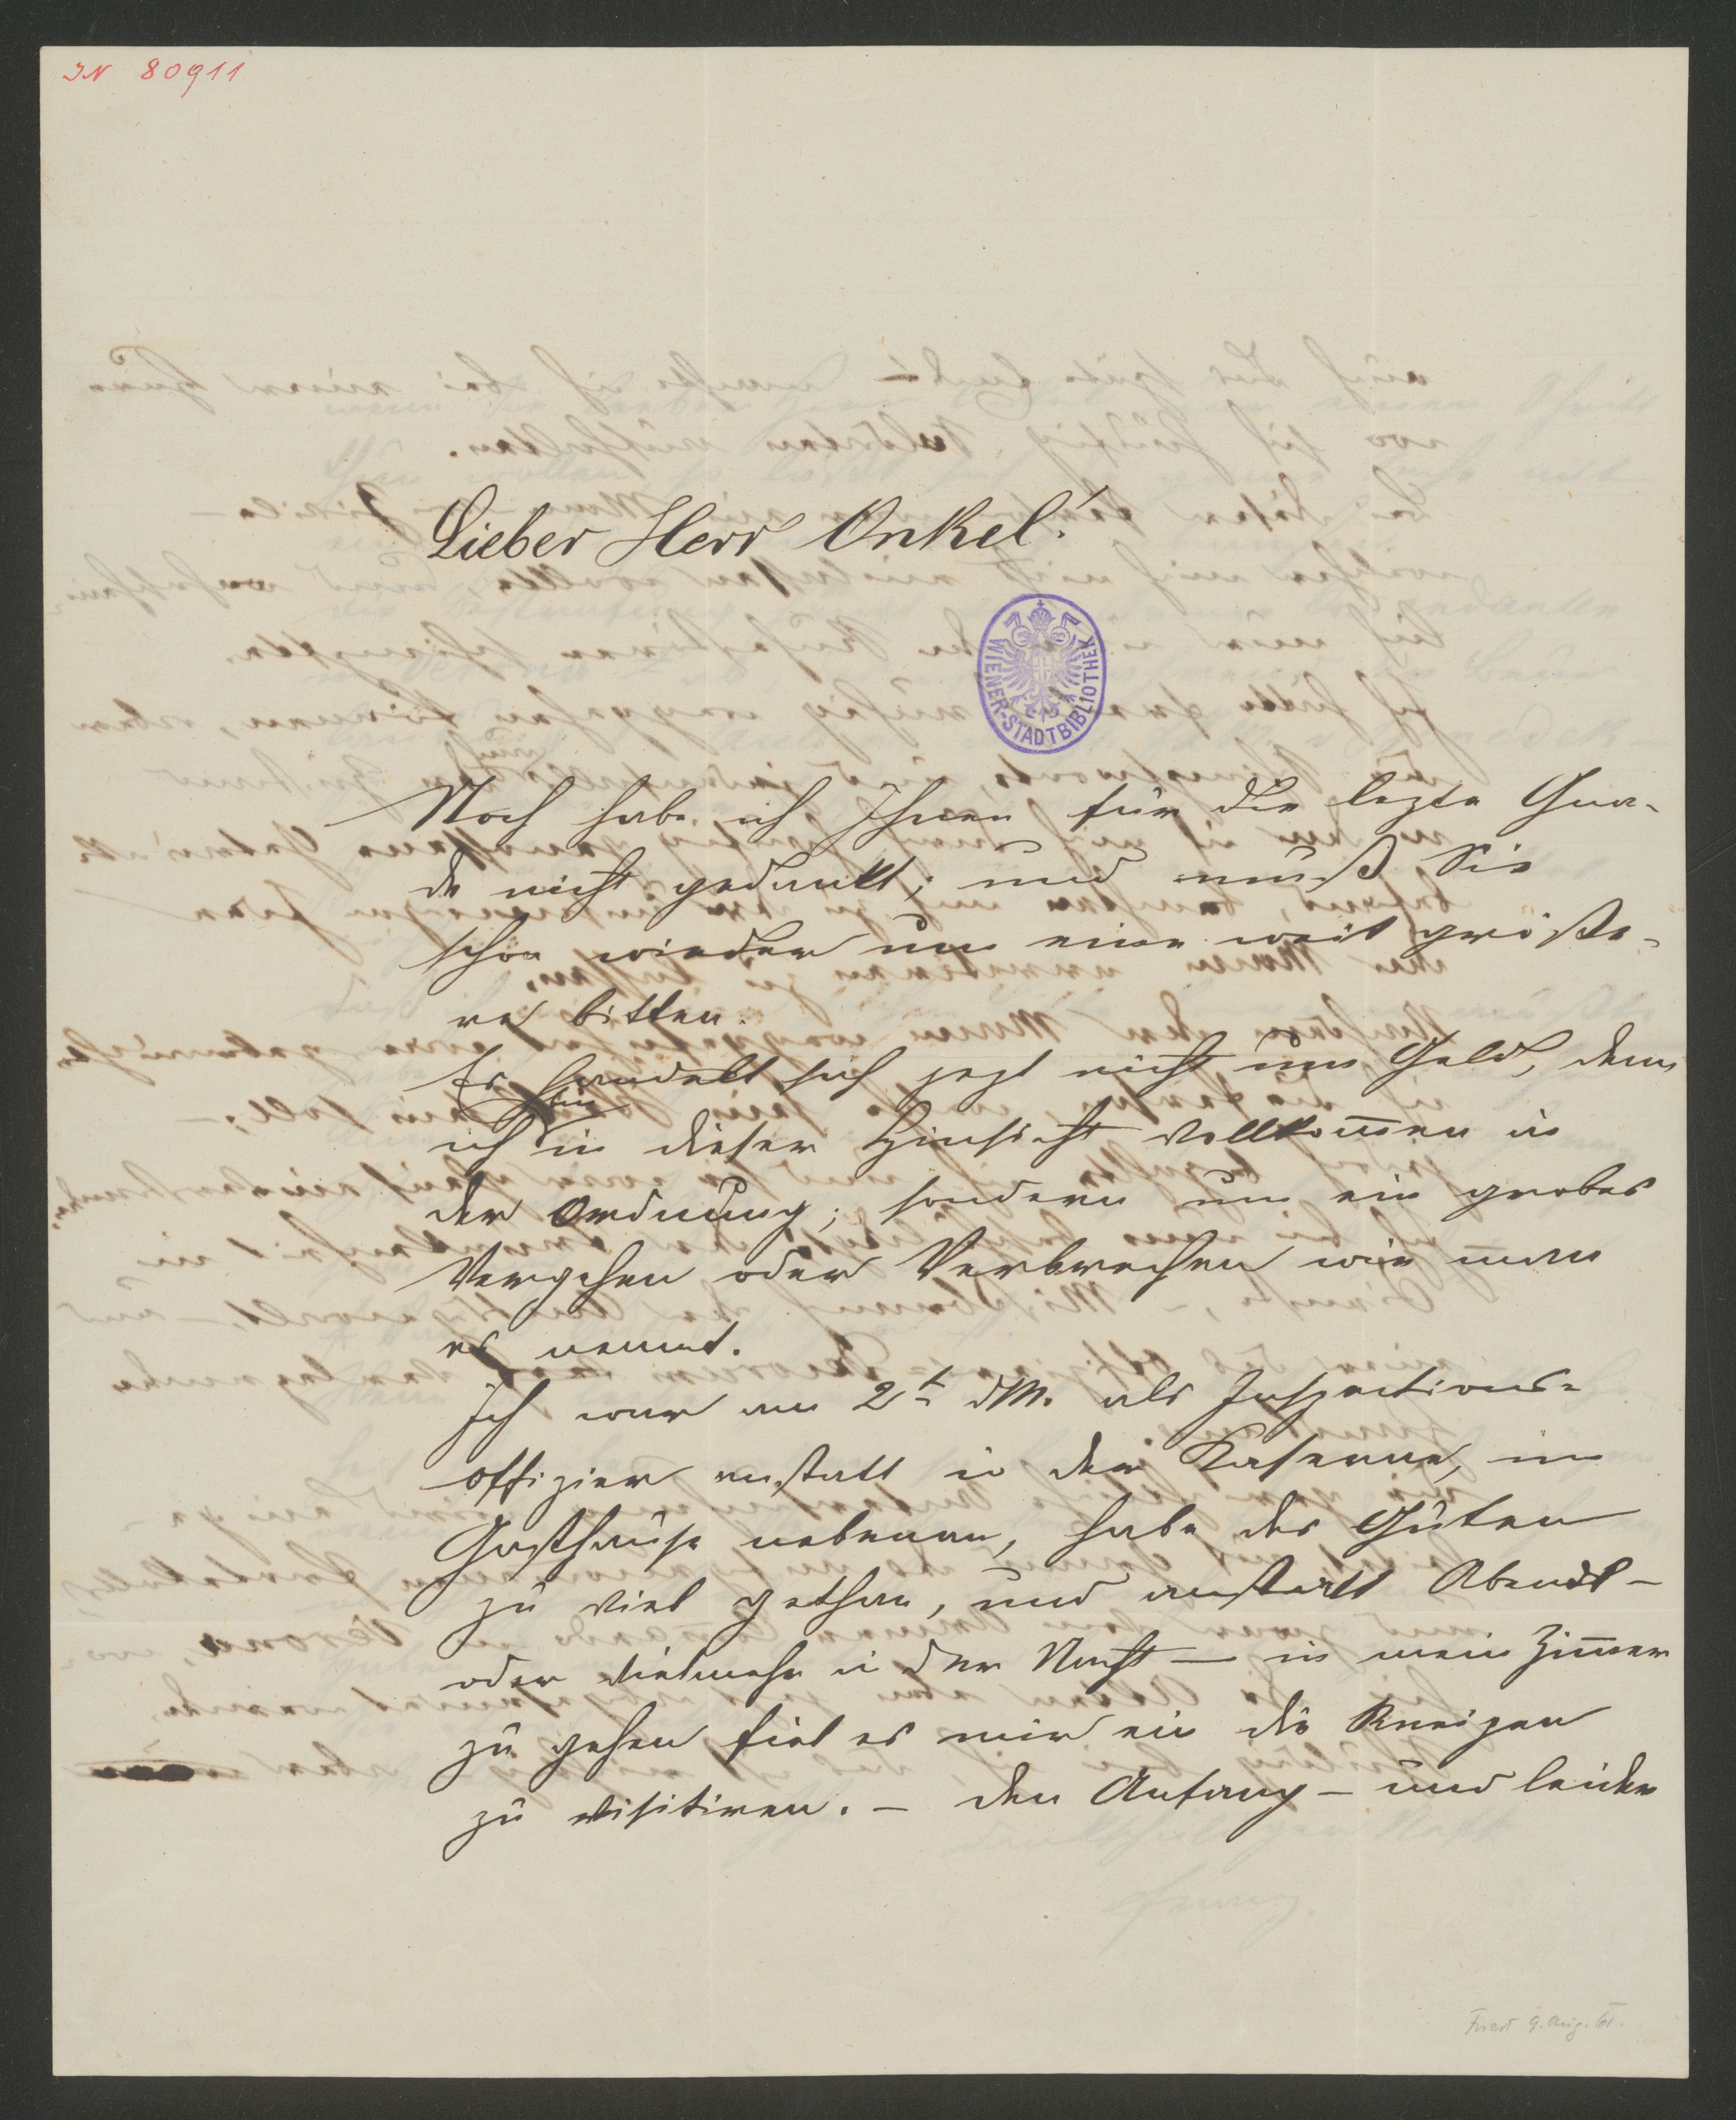 IN 80911
Lieber Herr Onkel!
WIENER-STADTBIBLIOTHEK
Noch habe ich Ihnen für die lezte Gna-
de nicht gedankt; und muß Sie
schon wieder um eine weit größe-
re bitten.
Es handelt sich jezt nicht um Geld, denn
bin
ich in dieser Hinsicht vollkom̅en in
der Ordnung; sondern um ein grobes
Vergehen oder Verbrechen wie man
es nennt.
Ich war am 2t dM. als Inspections-
offizier anstatt in der Kaserne, im
Gasthause nebenan, habe des Guten
zu viel gethan, und anstatt Abends -
oder vielmehr in der Nacht — in mein Zim̅er
zu gehen fiel es mir ein die Kneipen
zu visitiren. - den Anfang - und leider
9. Aug. 61.